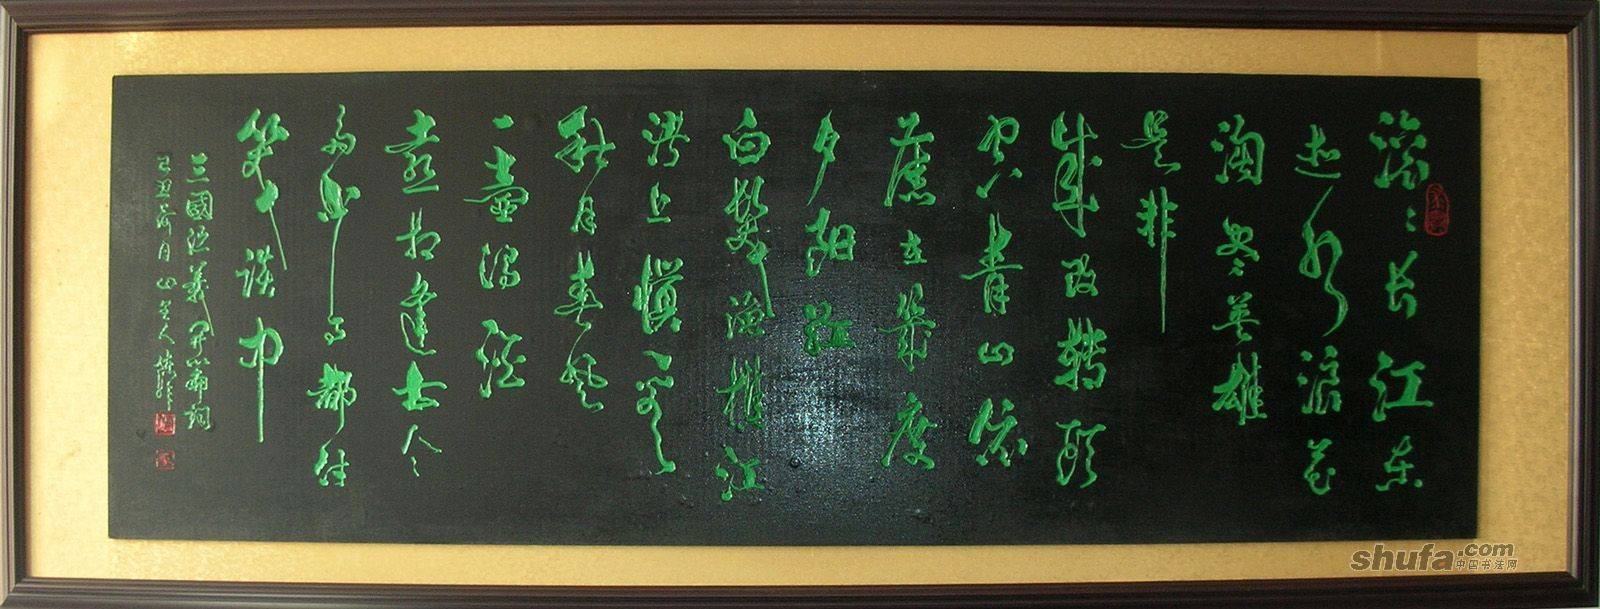 滚滚长江东
逝水浪花
淘尽英雄
是非
成败转头
空青山依
舊在幾度
夕阳红
白髮渔樵江
渚上惯看
秋月春风
一壶濁酒
喜相逢古今
多少事都付
笑谈中
三國演義开篇词
己丑荷月山
shufa.com
中国书法网